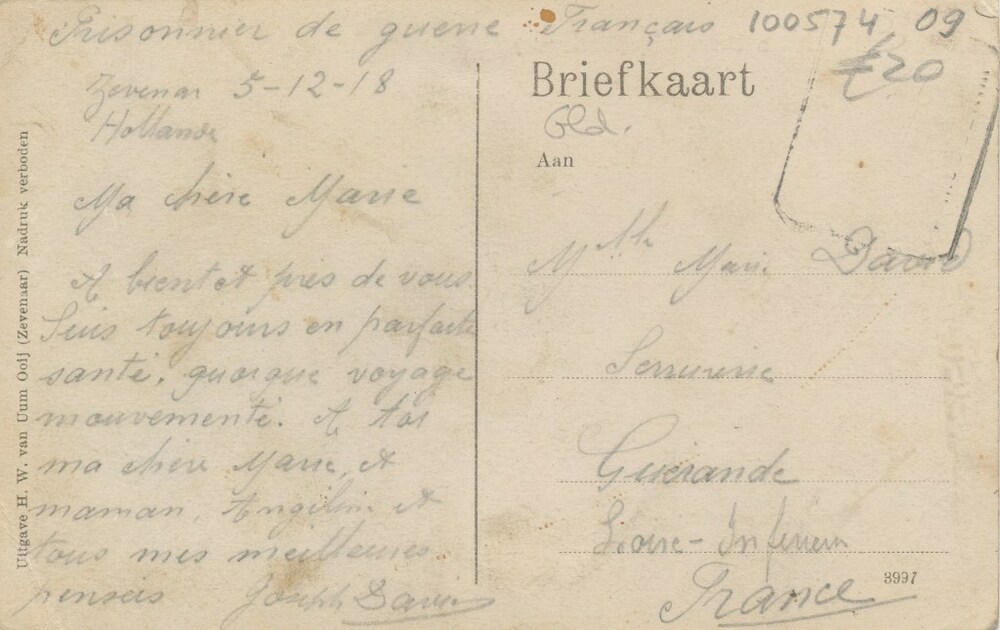 Prisonnier de guerre Français 100574 09
£20
Zevenar 5-12-18
Hollande
Ma chère Marie
A bientot près de vous.
Suis toujours en parfaite
santé, quoique voyage
mouvementé. A toi
ma chère Marie, et
maman, Angélin et
tous mes meilleures
penseés Joseph David
Uitgave H. W. van Uum Ooij (Zevenaar) Nadruk verboden
Briefkaart
Gld.
Aan
Mlle Marie David
Serrurerie
Guérande
Loire-Inferieure
France
3997